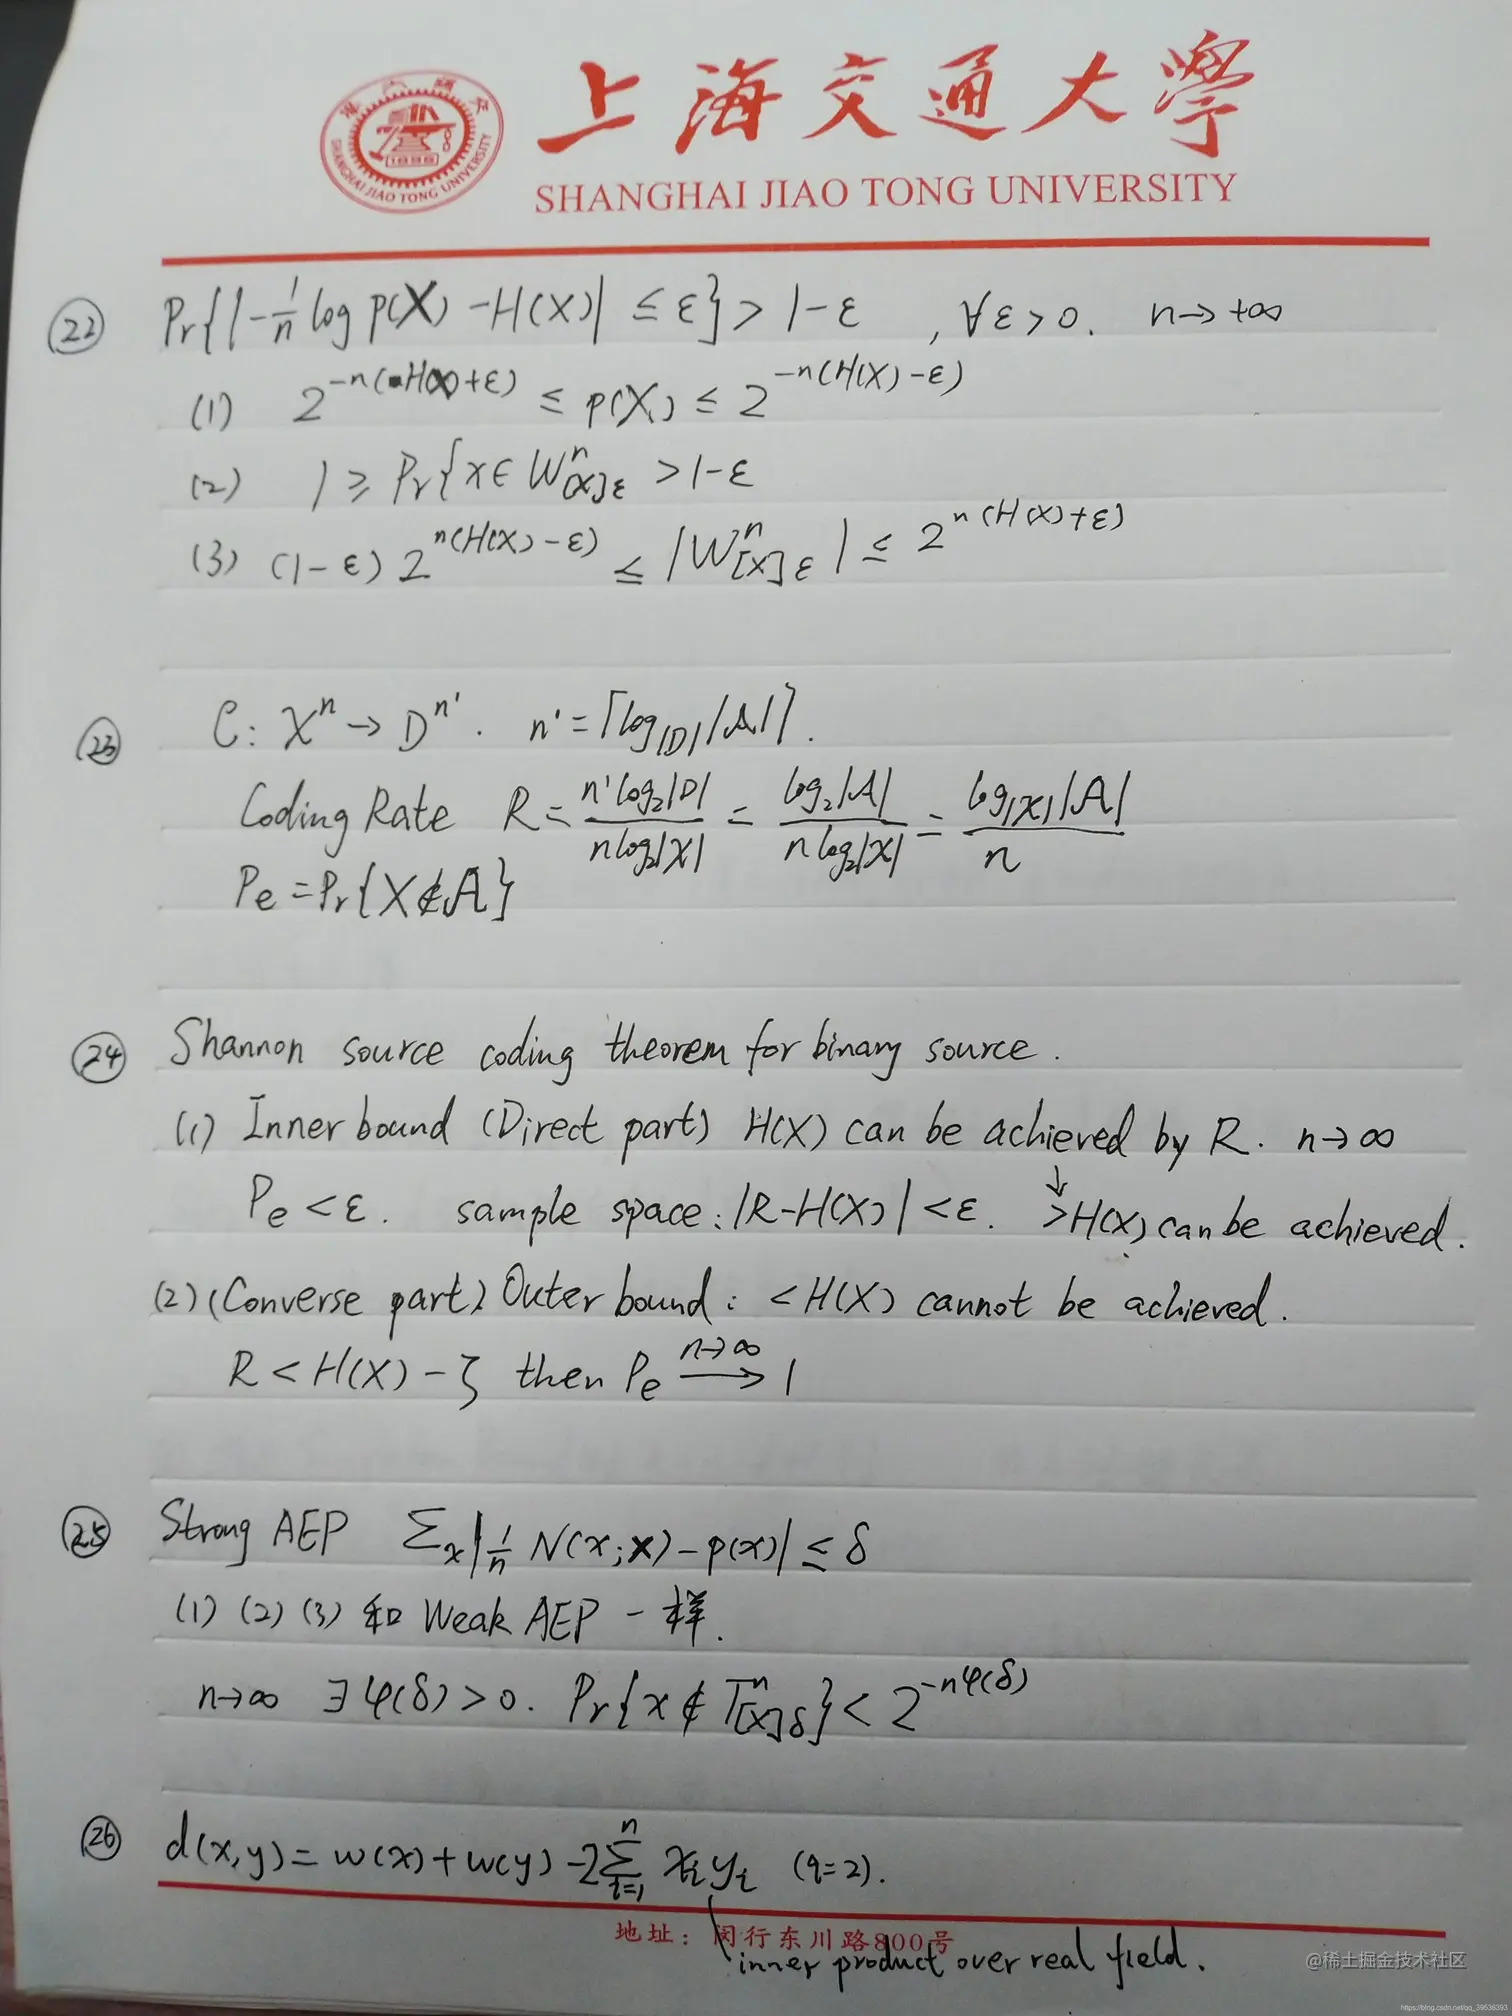 上海交通大學
SHANGHAI JIAO TONG UNIVERSITY
SHANGHAI JIAO TONG UNIVERSITY
1896
㉒ Pr{|-1/n log p(X) - H(X)| ≤ ε} > 1-ε , ∀ε>0. n→+∞
(1) 2^{-n(H(X)+ε)} ≤ p(X) ≤ 2^{-n(H(X)-ε)}
(2) 1 ≥ Pr{x∈W^n_{[X]ε} > 1-ε
(3) (1-ε) 2^{n(H(X)-ε)} ≤ |W^n_{[X]ε}| ≤ 2^{n(H(X)+ε)}
㉓ C: X^n → D^{n'}. n' = ⌈log_{|D|}|A|⌉.
Coding Rate R = n'log₂|D| / nlog₂|X| = log₂|A| / nlog₂|X| = log_{|X|}|A| / n
Pe = Pr{X∉A}
㉔ Shannon source coding theorem for binary source.
(1) Inner bound (Direct part) H(X) can be achieved by R. n→∞
Pe < ε. sample space: |R-H(X)| < ε. ↓ >H(X) can be achieved.
(2) (Converse part) Outer bound: <H(X) cannot be achieved.
R < H(X) - ζ then Pe →^{n→∞} 1
㉕ Strong AEP Σ_x |1/n N(x;x) - p(x)| ≤ δ
(1) (2) (3) 和 Weak AEP 一样.
n→∞ ∃φ(δ)>0. Pr{x∉T^n_{[X]δ}} < 2^{-nφ(δ)}
㉖ d(x,y) = w(x)+w(y)-2Σ_{i=1}^{n} x_i y_i (q=2).
地址：闵行东川路800号
inner product over real field.
@稀土掘金技术社区
https://blog.csdn.net/qq_39538393